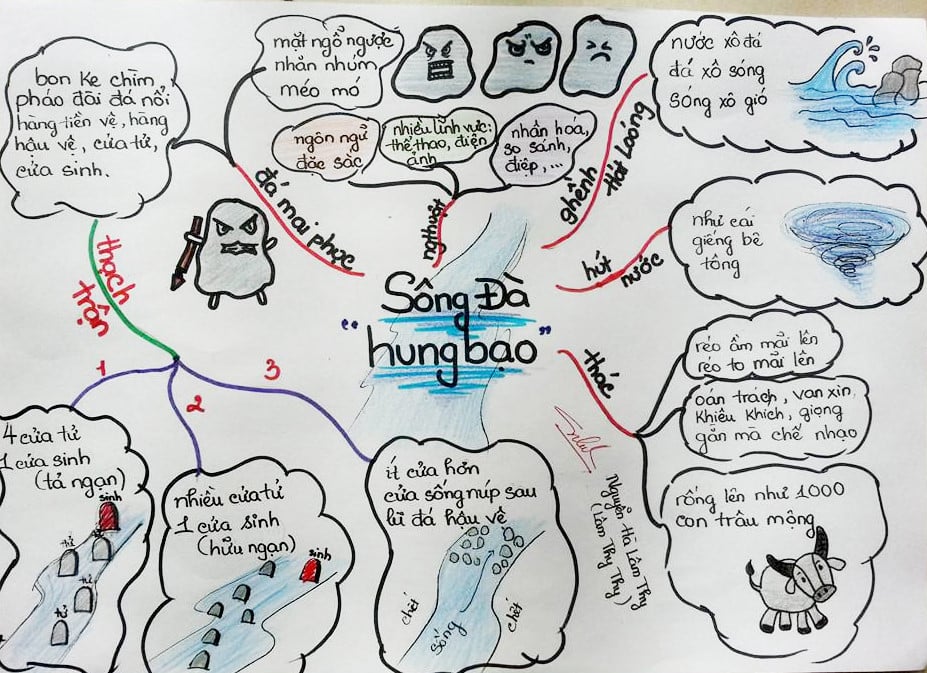 Sông Đà
"hung bạo"
bon ke chìm,
pháo đài đá nổi
hàng tiền vệ, hàng
hậu vệ, cửa tử,
cửa sinh.
mặt ngổ ngược
nhăn nhúm
méo mó
đá mai phục
ngôn ngữ
đặc sắc
nhiều lĩnh vực:
thể thao, điện
ảnh
nhân hóa,
so sánh,
điệp,...
ngthuật
nước xô đá
đá xô sóng
sóng xô gió
ghềnh
Hát Loóng
như cái
giếng bê
tông
hút
nước
thác
réo ầm mãi lên
réo to mãi lên
oán trách, van xin,
khiêu khích, giọng
gằn mà chế nhạo
rống lên như 1000
con trâu mộng
Nguyễn Hà Lâm Thy
(Lâm Thy Thy)
thạch
trận
1
2
3
4 cửa tử
1 cửa sinh
(tả ngạn)
sinh
tử
tử
tử
nhiều cửa tử
1 cửa sinh
(hữu ngạn)
sinh
ít cửa hơn
cửa sống núp sau
lũ đá hậu vệ
chết
sống
chết